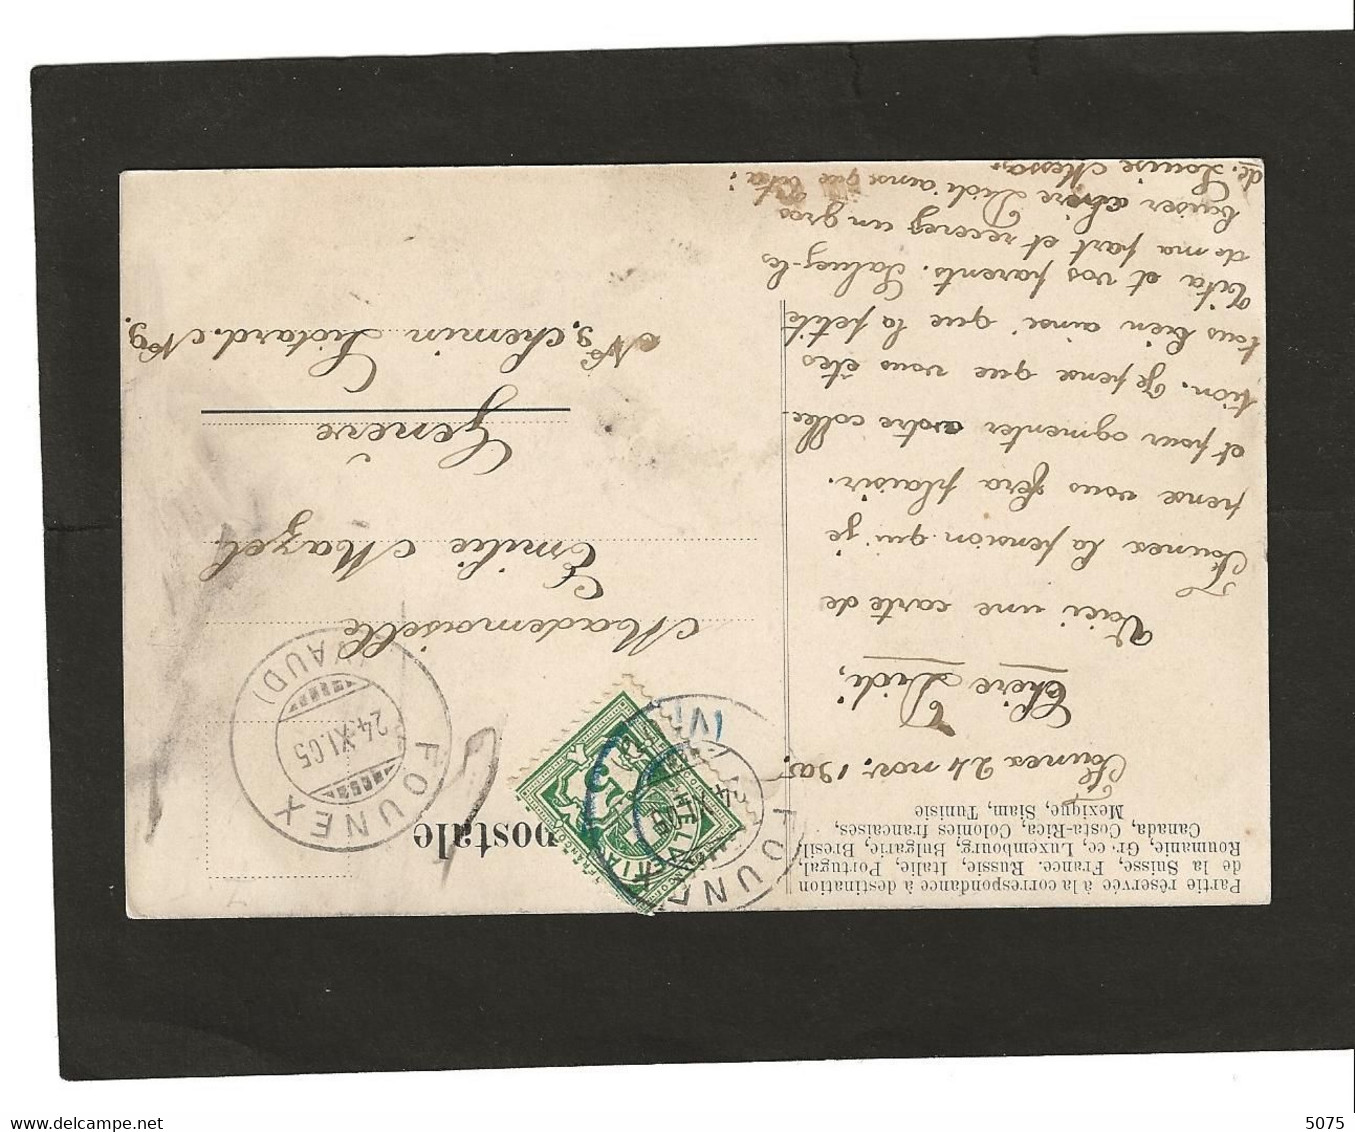 Partie réservée à la correspondance à destination
de la Suisse, France, Russie, Italie, Portugal,
Roumanie, Gr. ce, Luxembourg, Bulgarie, Brésil,
Canada, Costa-Rica, Colonies francaises,
Mexique, Siam, Tunisie
Founex 24 nov. 1905
Chère Didi,
Voici une carte de
Founex la pension qui je
pense vous fera plaisir.
et pour ogmenter votre collec-
tion. Je pense que vous êtes
tous bien ainsi que la petite
Tita et vos parents. Saluez-les
de ma part et recevez un gros
baiser chère Didi ainsi que Tita:
de. Louise
postale
FOUNEX
24.XI.05
(VAUD)
FOUNEX
24
HELVETIA
Mademoiselle
Emilie Mazel
Genève
No 9, chemin Liotard. No 9.
delcampe.net
5075